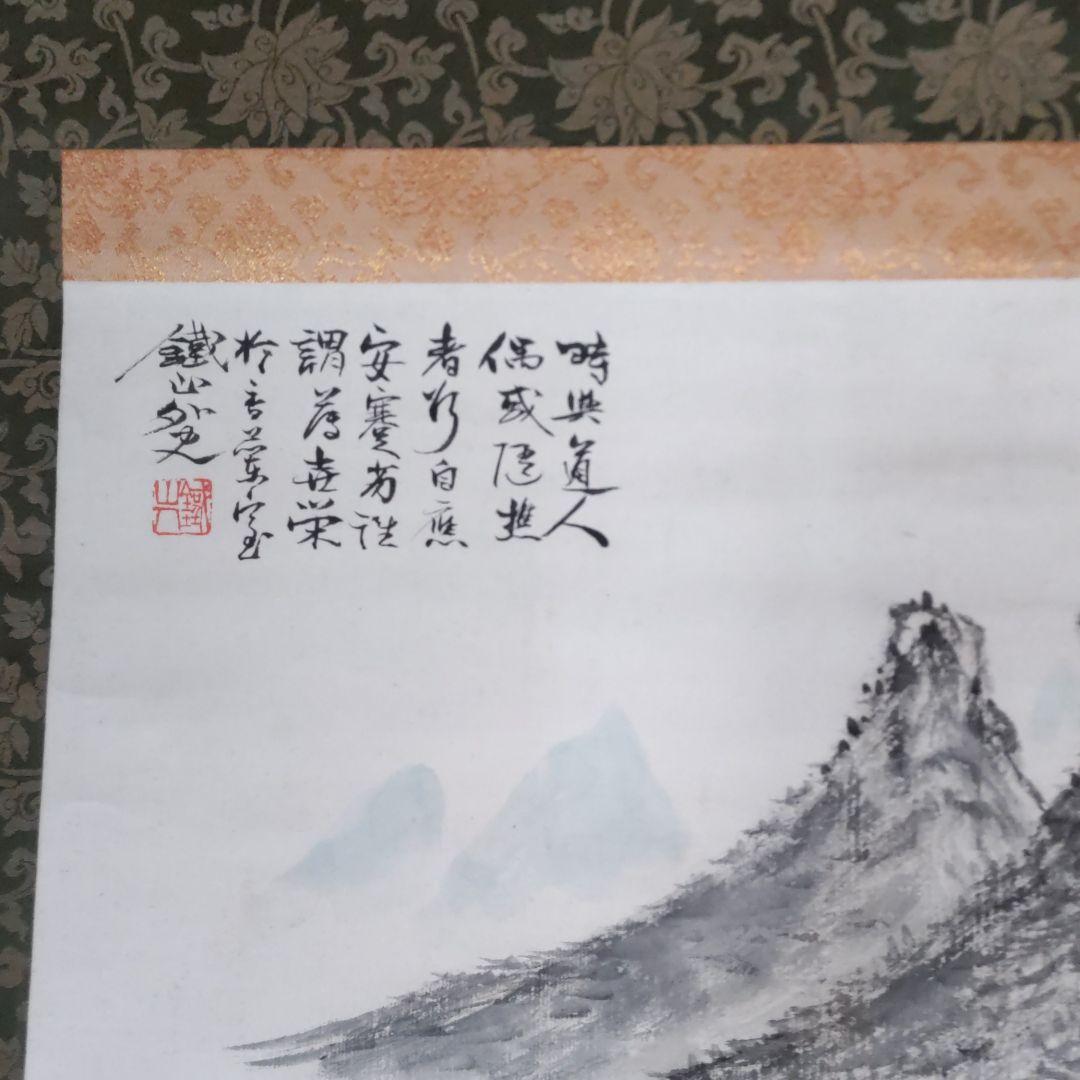 時與道人
偶或隨樵
者行自應
安蹇劣誰
謂薄世榮
於香蘭室
鐵山外史
鐵山